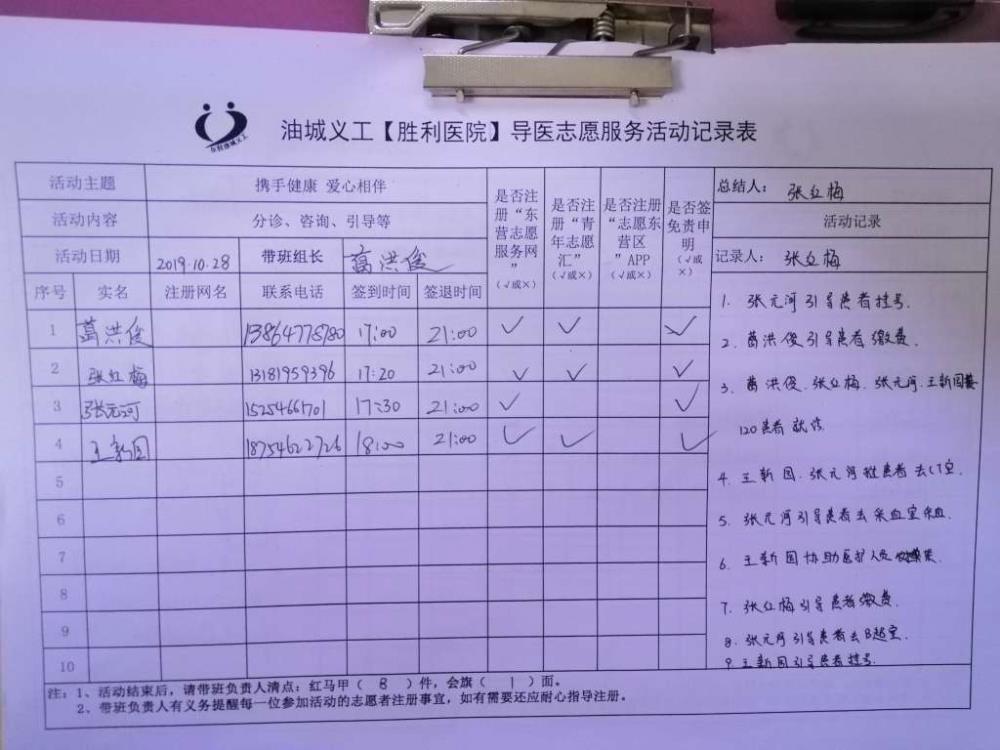 油城义工【胜利医院】导医志愿服务活动记录表
活动主题 携手健康 爱心相伴
活动内容 分诊、咨询、引导等
活动日期 2019.10.28 带班组长 葛洪俊
序号 实名 注册网名 联系电话 签到时间 签退时间
是否注册“东营志愿服务网”(√或×)
是否注册“青年志愿汇”(√或×)
是否注册“志愿东营区”APP(√或×)
是否签免责申明(√或×)
1 葛洪俊 13864778780 17:00 21:00 √ √ √
2 张红梅 13181959396 17:20 21:00 √ √ √
3 张元河 15254661701 17:30 21:00 √ √
4 王新国 18754622726 18:00 21:00 √ √ √
5
6
7
8
9
10
总结人: 张红梅
活动记录
记录人: 张红梅
1. 张元河引导患者挂号.
2. 葛洪俊引导患者缴费.
3. 葛洪俊、张红梅、张元河、王新国
120患者就诊
4. 王新国、张元河 患者去CT室.
5. 张元河引导患者去采血室采血.
6. 王新国协助医护人员
7. 张红梅引导患者缴费.
8. 张元河引导患者去B超室.
9. 王新国引导患者挂号.
注:1、活动结束后,请带班负责人清点:红马甲( 8 )件,会旗( 1 )面。
2、带班负责人有义务提醒每一位参加活动的志愿者注册事宜,如有需要还应耐心指导注册。